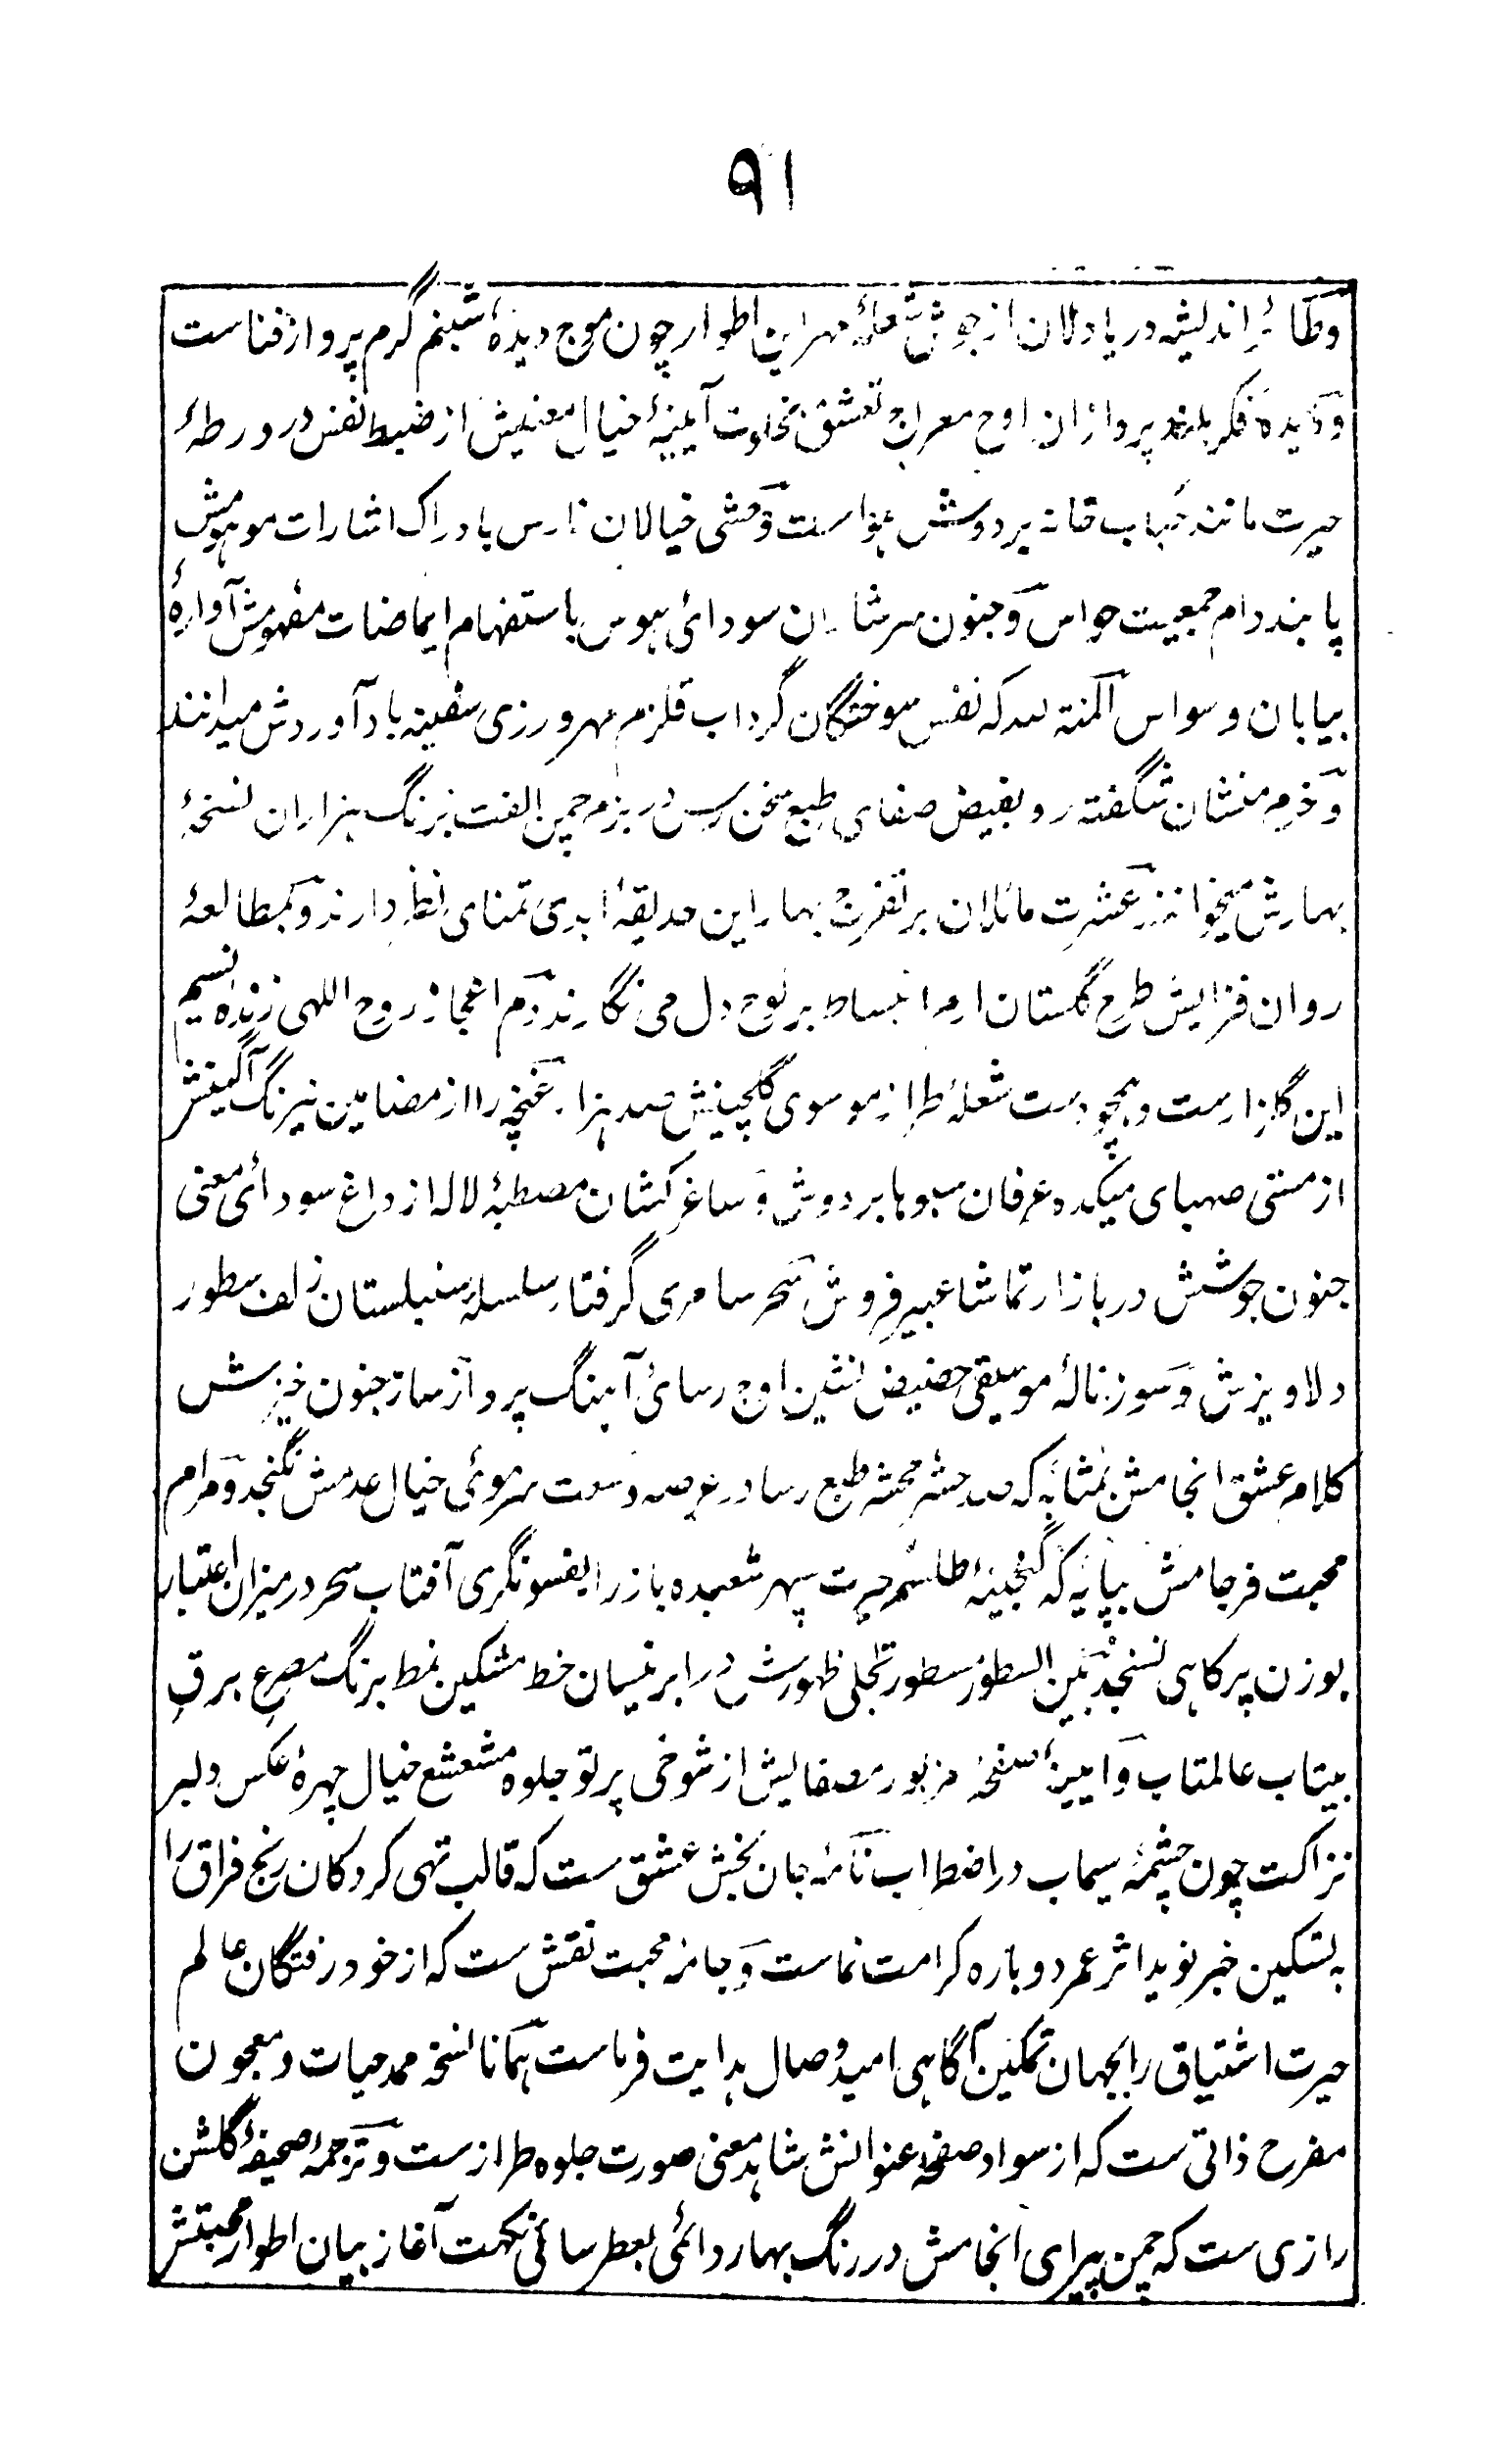 ۹۱
وطائر اندیشه دریادلان از جوش شعلهٔ مهر این اطوار چون موج دیدهٔ شبنم گرم پرواز فناست
ودیدهٔ فکر بلند پروازان اوج معراج تعشق بخلوت آیینهٔ خیال معنیش از ضبط نفس در ورطهٔ
حیرت مانند حباب خانه بر دوش هواست وحشی خیالان نارس بادراک اشارات موهومش
پابند دام جمعیت حواس و جنون سرشاران سودائی هوس باستفهام ایماضات مفهومش آوارهٔ
بیابان وسواس که نفس سوختگان گرداب قلزم مهرورزی سفینه بادآوردش میدانند
و خرم منشان شگفته رو بفیض صفای طبع سخن رس در بزم چمن الفت برنگ هزاران نسخهٔ
بهارش میخوانند عشرت مائلان بر تفرج بهار این حدیقهٔ ابدی تمنای نظر دارند و بمطالعهٔ
روان فزایش طرح گلستان ارم انبساط بر لوح دل می نگارند دم اعجاز روح اللهی زنده نسیم
این گلزارست و همچو دست شعلهٔ طراز موسوی گلچینش صد هزار غنچه را از مضامین نیرنگ آگینش
از مستی صهبای میکده عرفان سبوها بر دوش و ساغر کشان مصطبهٔ لاله از داغ سودائی معنی
جنون جوشش در بازار تماشا عبیر فروش سحر سامری گرفتار سلسلهٔ سنبلستان زلف سطور
دلاویزش و سوز نالهٔ موسیقی حضیض نشین اوج رسائی آهنگ پرواز ساز جنون خیزش
کلام عشق انجامش بمثابهٔ که صد حشر محشر طبع رسا در عرصه وسعت سرموئی خیال عدمش نگنجد و مرام
محبت فرجامش بپایهٔ که گنجینهٔ طلسم حیرت سپهر شعبده باز را بفسونگری آفتاب سحر در میزان اعتبار
بوزن پر کاهی نسنجد بین السطور سطور تجلی ظهورش در ابر نیسان خط مشکین نمط برنگ مصرع برق
بیتاب عالمتاب و آیینهٔ صفحهٔ مزبور مصفالیش از شوخی پرتو جلوه مشعشع خیال چهرهٔ عکس دلبر
نزاکت چون چشمهٔ سیماب در اضطراب نامه جان بخش عشق ست که قالب تهی کردگان رنج فراق را
به تسکین خبر نوید اثر عمر دوباره کرامت نماست و جامهٔ محبت نقش ست که از خود رفتگان عالم
حیرت اشتیاق را بجهان تمکین آگاهی امید وصال هدایت فرماست همانا نسخه ممد حیات و معجون
مفرح ذاتی ست که از سواد صفحه عنوانش شاهد معنی صورت جلوه طرازست و ترجمهٔ صحیفهٔ گلشن
رازی ست که چمن پیرای انجامش در رنگ بهار دائمی بعطر سائی نکهت آغاز بیان اطوار محبتش